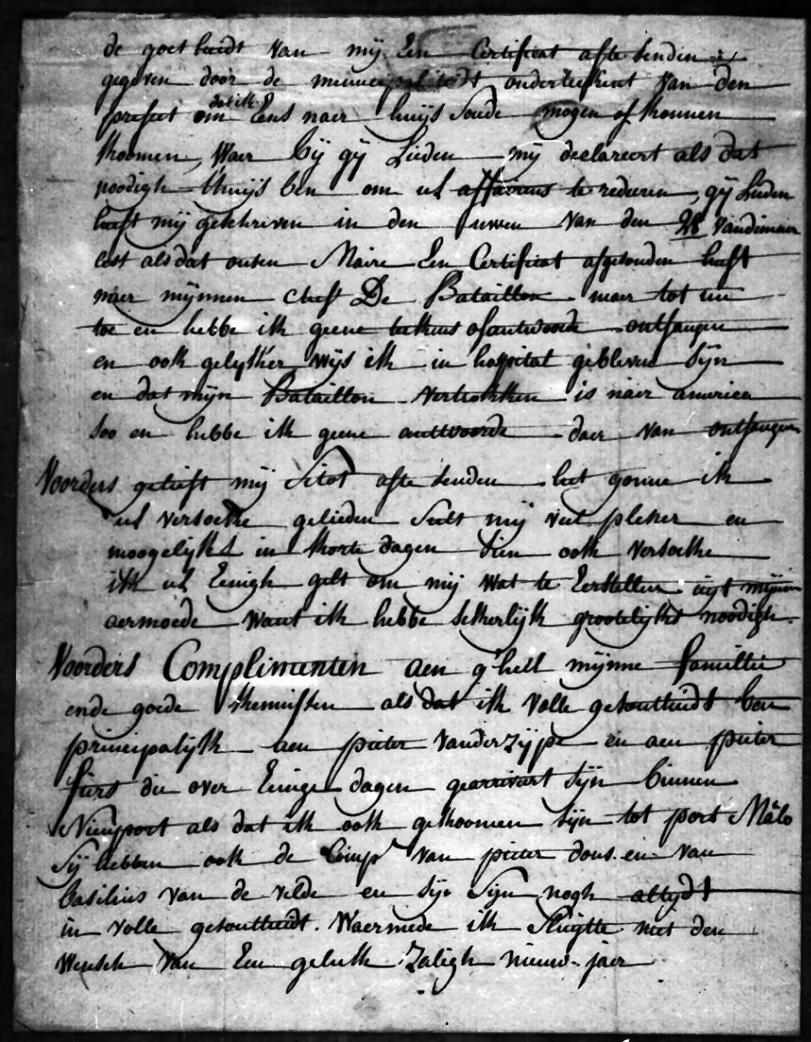 de goetheidt van mij Een Certificat afte senden
gegeven door de meuniesipalitiedt onderteekent van den
prefect om dat ik Eens naer huijs soude mogen of konnen
koomen, Waer bij gij Lieden mij declareert als dat
noodigh thuijs ben om ul affairens te reduren, gij Lieden
heeft mij geschreven in den uwen van den 28 Vandimiair
lest als dat onsen Maire Een Certificat afgesonden heeft
naer mijnnen cheef De Bataillon maer tot nu
toe en hebbe ik geene teekens of antwoorde ontfangen
en ook gelijker wijs ik in hospitat gebleven sijn
en dat mijn Bataillon vertrokken is naer america
soo en hebbe ik geene antwoorde daer van ontfangen
Voorders gelieft mij Sitot afte senden het gonne ik
ul versoeke gelieden sult mij veel plesier en
moogelijk in korte dagen Sien ook versoeke
ik ul Eenigh gelt om mij wat te Eerstellen uijt mijn
aermoede want ik hebbe sekerlijk grootelijks noodigh.
Voorders Complimenten aen g'heel mijnne famillie
ende goede kennissen als dat ik volle gesontheidt ben
principalijk aen pieter vanderzijpe en aen pieter
fiers die over Eenige dagen gearriveert sijn binnen
Nieuport als dat ik ook gekoomen sijn tot port Mâlo
sij hebben ook de Comp van pieter dous en van
basilius van de velde en sijn nogh altijdt
in volle gesontheidt. Waermede ik sluijtte met den
Wensch van Een geluk zaligh nieuw-jaer